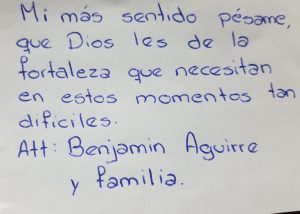 Mi más sentido pésame,
que Dios les de la
fortaleza que necesitan
en estos momentos tan
dificiles.
Att: Benjamin Aguirre
y familia.